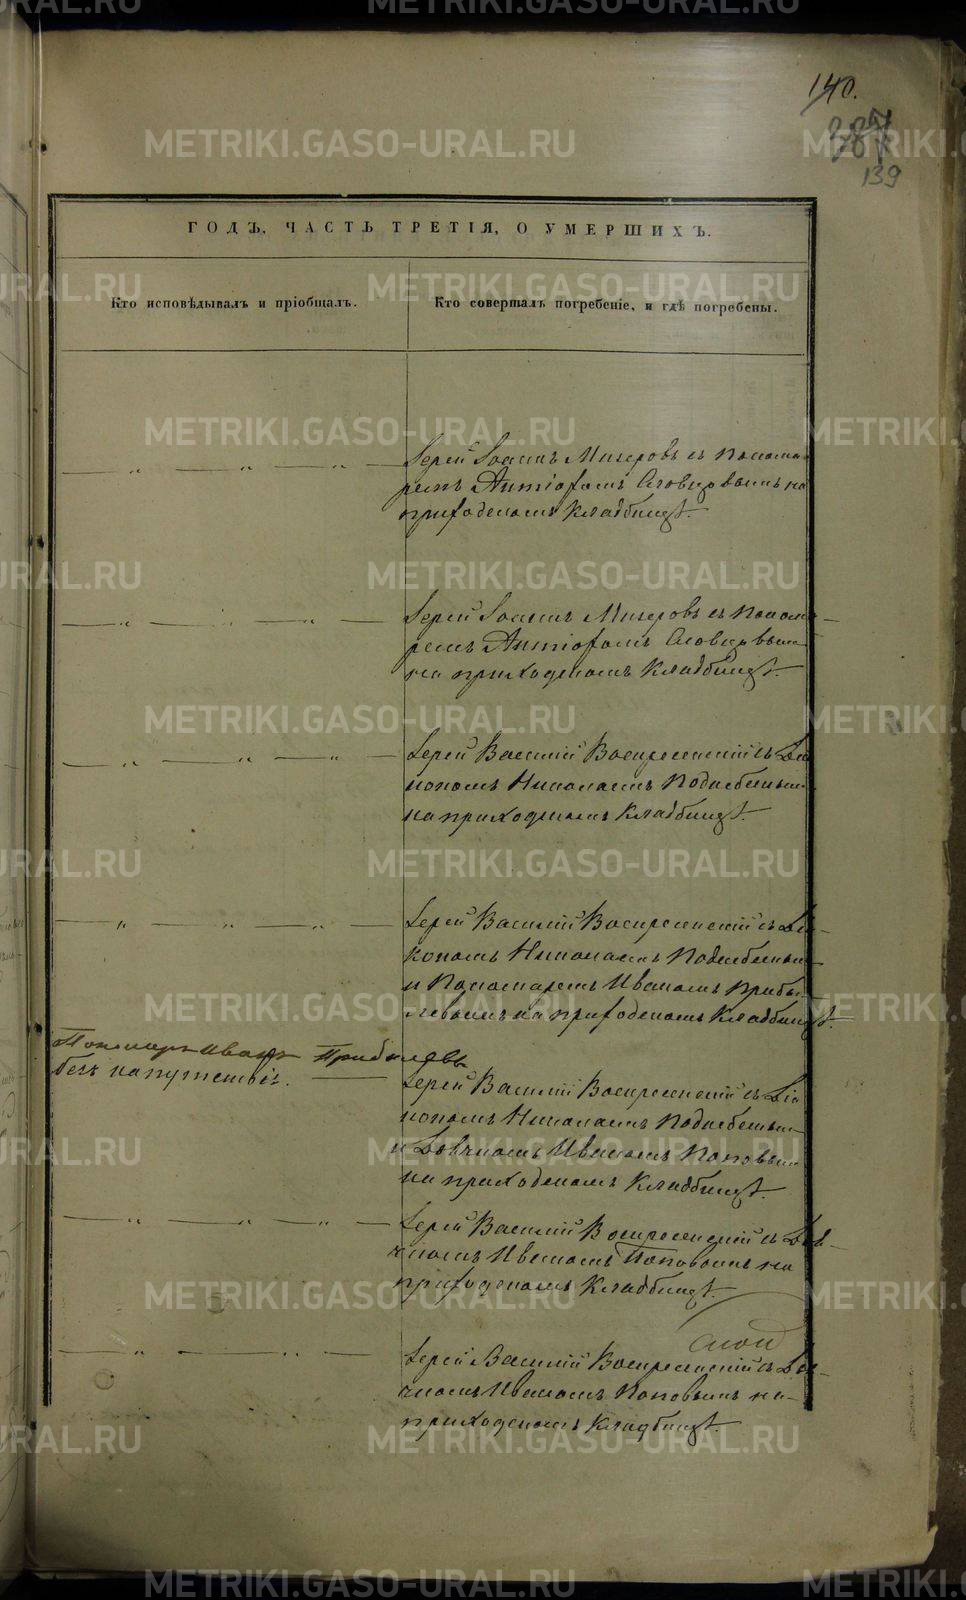 140.
387
139
ГОДЪ, ЧАСТЬ ТРЕТІЯ, О УМЕРШИХЪ.
Кто исповѣдывалъ и пріобщалъ.
Кто совершалъ погребеніе, и гдѣ погребены.
— „ — „ — „ —
Іерей Іоаннъ Мизеровъ съ понома-
ремъ Антіохомъ Словцовымъ на
приходскомъ кладбищѣ.
— „ — „ — „ —
Іерей Іоаннъ Мизеровъ съ поном-
ремъ Антіохомъ Словцовымъ
на приходскомъ кладбищѣ.
— „ — „ — „ —
Іерей Василій Воскресенскій съ Діа
кономъ Николаемъ
на приходскомъ кладбищѣ.
— „ — „ — „ —
Іерей Василій Воскресенскій съ Діа-
кономъ Николаемъ
и Пономаремъ Иваномъ Прибы
левымъ на приходскомъ кладбищѣ.
Пономарь Иванъ Прибылевъ
безъ напутствія.
Іерей Василій Воскресенскій съ Діа
кономъ Николаемъ
и Дьячкомъ Иваномъ Поповымъ
на приходскомъ кладбищѣ.
— „ — „ — „ —
Іерей Василій Воскресенскій съ Дья-
чкомъ Иваномъ Поповымъ на
приходскомъ кладбищѣ.
— „ — „ — „ —
Іерей Василій Воскресенскій съ Дья-
чкомъ Иваномъ Поповымъ на-
приходскомъ кладбищѣ.
METRIKI.GASO-URAL.RU